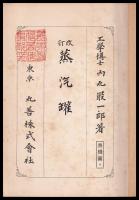 工學博士 内丸最一郎著
改訂 蒸汽罐
東京 丸善株式會社